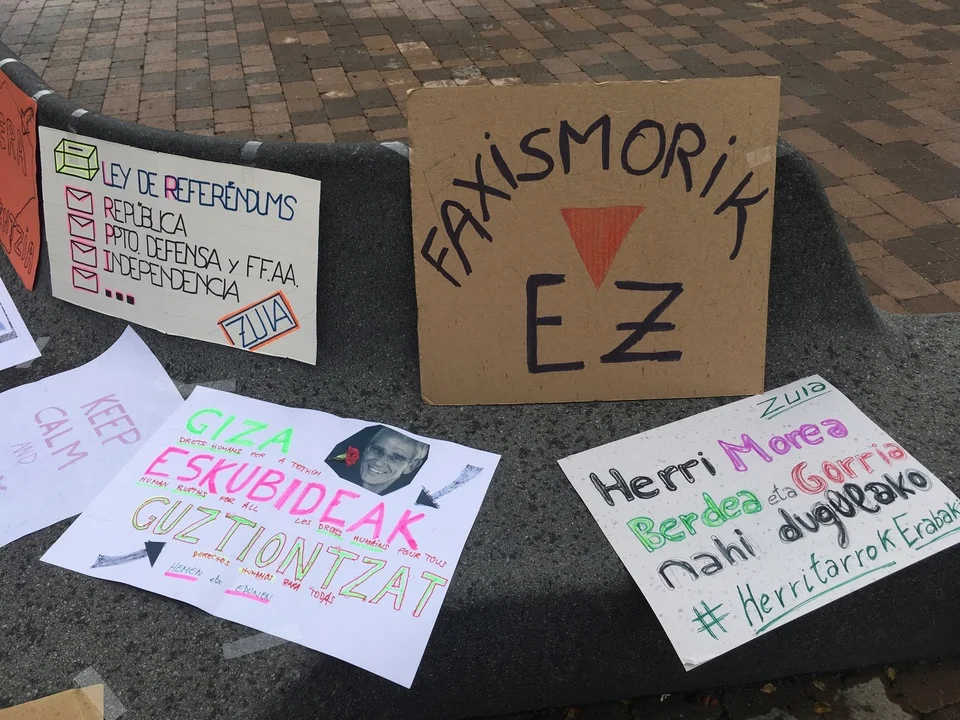 LEY DE REFERÉNDUMS
REPÚBLICA
PPTO DEFENSA y FF.AA.
INDEPENDENCIA
...
ZUIA
FAXISMORIK
EZ
KEEP
CALM
AND
GIZA
DRETS HUMANS PER A TOTHOM
ESKUBIDEAK
HUMAN RIGTHS FOR ALL LES DROITS HUMAINS POUR TOUS
GUZTIONTZAT
DERECHOS HUMANOS PARA TODAS
HEMEN eta EDONON
ZUIA
Herri Morea
Berdea eta Gorria
nahi dugulako
#Herritarrok Erabaki